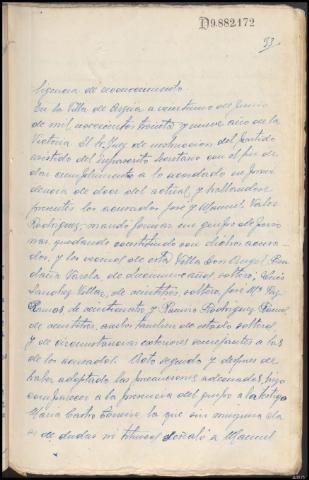 D9.882.172
53
ligencia de reconocimiento
En la Villa de Arzúa a veintiuno de Junio
de mil novecientos treinta y nueve año de la
Victoria El Sr Juez de instrucción del Partido
asistido del infrascrito Secretario con el fin de
dar cumplimiento a lo acordado en provi
dencia de doce del actual, y hallandose
presentes los acusados José y Manuel
Rodriguez, mandó formar un grupo de perso
nas quedando constituido con dichos acusa
dos, y los vecinos de esta Villa Don Angel
Varela de diecinueve años soltero, Luis
Sanchez de veintitres, soltero, José Mª
Ramos de veinticuatro y Ramiro Rodriguez
de veintitres, ambos tambien de estado soltero,
y de circunstancias exteriores semejantes a las
de los acusados. Acto seguido y despues de
haber adoptado las precauciones adecuadas, hizo
comparecer a la presencia del grupo a la testigo
Maria Castro la que sin ninguna cla
se de dudas ni titubeos señaló a Manuel